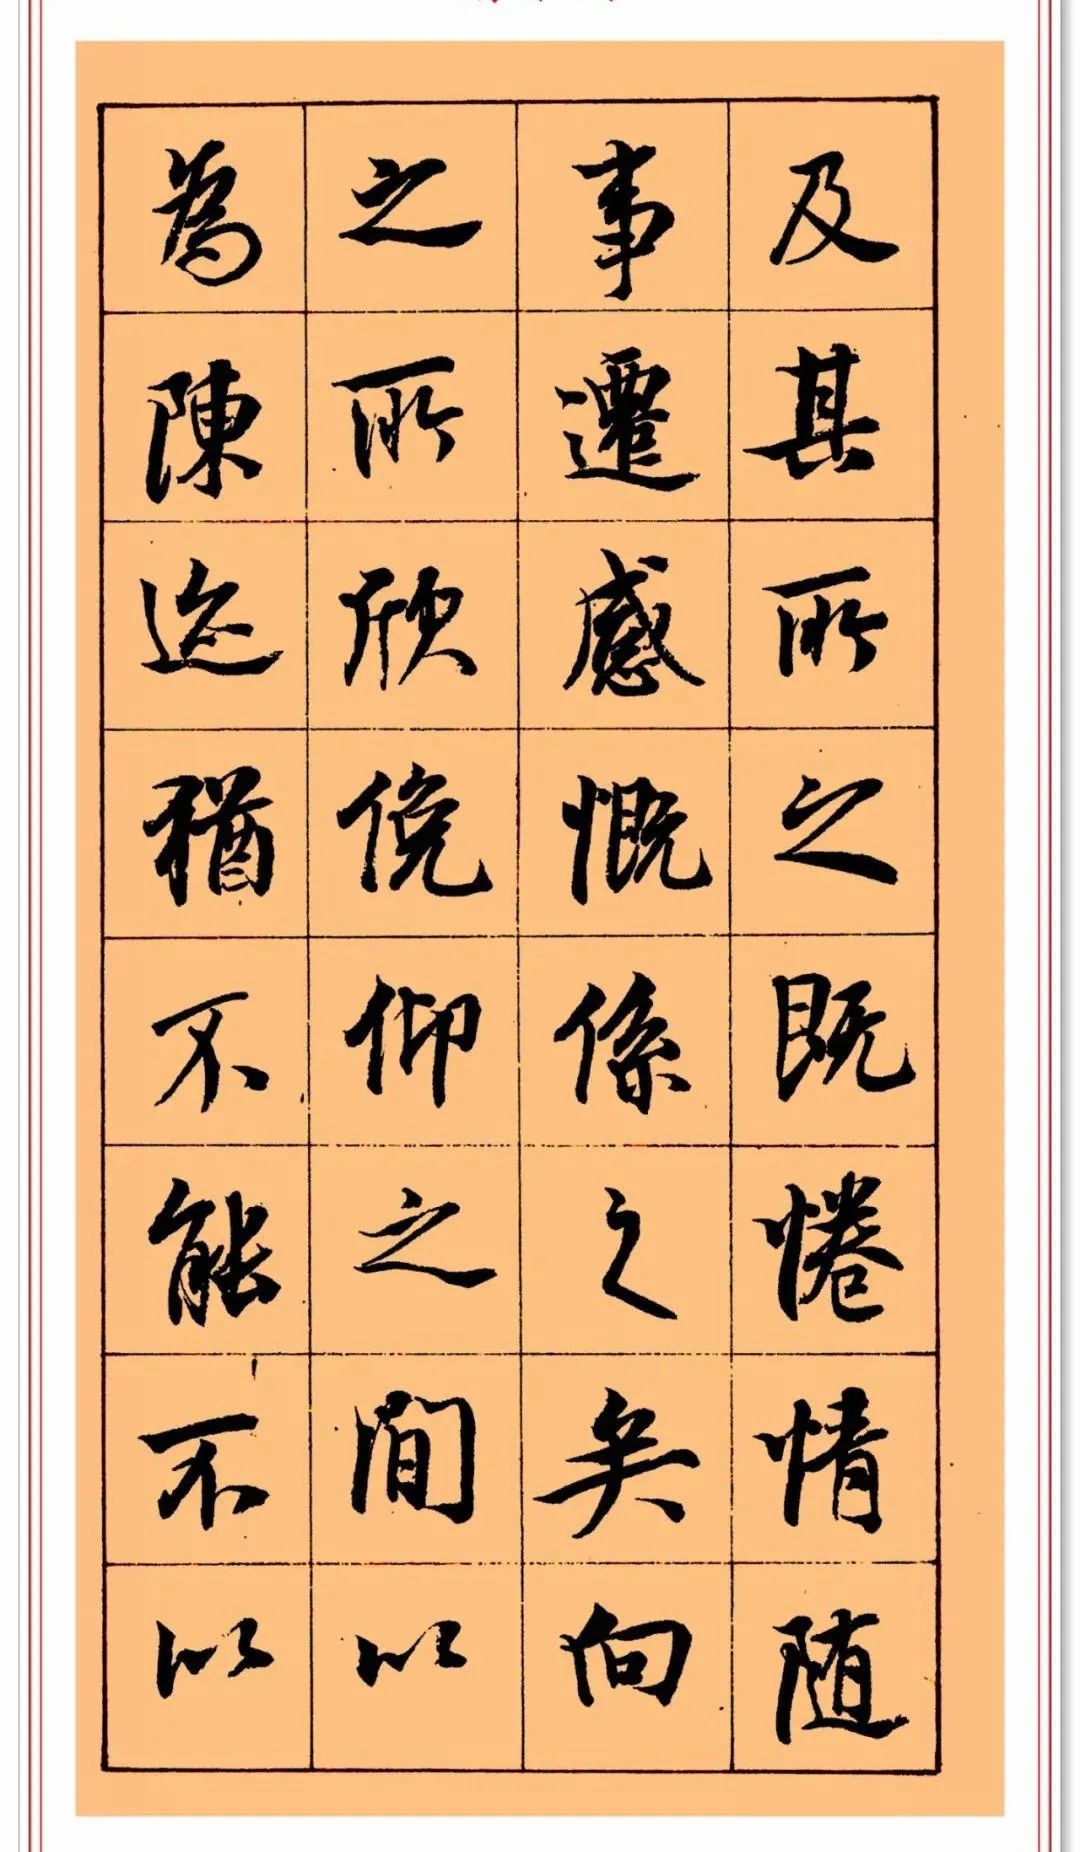 及其所之既惓情随
事遷感慨係之矣向
之所欣俛仰之間以
為陳迹猶不能不以